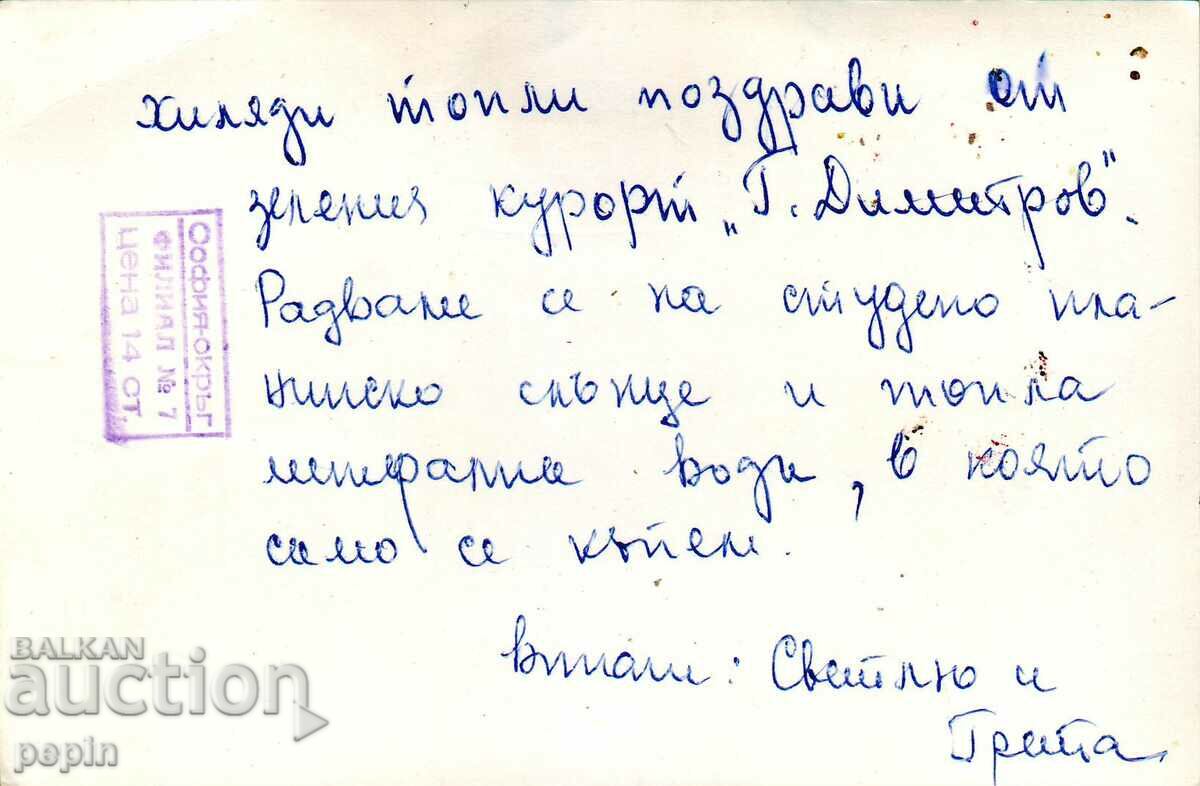 хиляди топли поздрави от
зеления курорт „Г. Димитров".
Радваме се на студено пла-
нинско слънце и топла
минерална вода, в която
само се къпем.
Светлю и
Грета
София-окръг
ФИЛИАЛ № 7
цена 14 ст.
BALKAN
auction
pepin